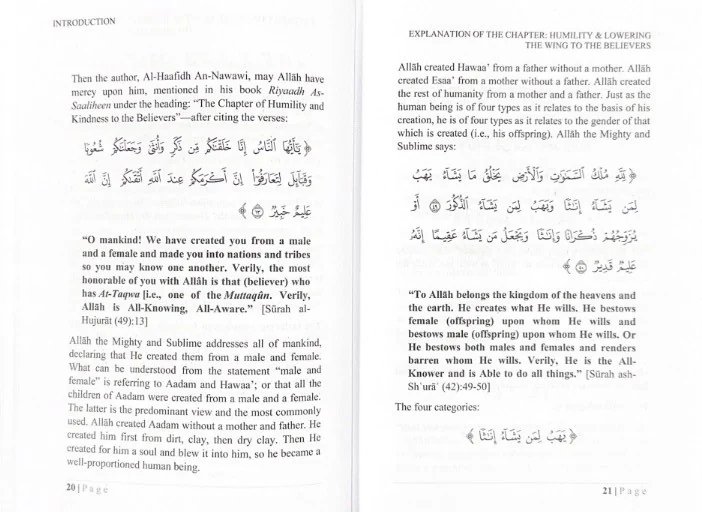 INTRODUCTION
Then the author, Al-Haafidh An-Nawawi, may Allāh have
mercy upon him, mentioned in his book Riyaadh As-
Saaliheen under the heading: “The Chapter of Humility and
Kindness to the Believers”—after citing the verses:
﴿ يَٰٓأَيُّهَا ٱلنَّاسُ إِنَّا خَلَقْنَٰكُم مِّن ذَكَرٍ وَأُنثَىٰ وَجَعَلْنَٰكُمْ شُعُوبًا
وَقَبَآئِلَ لِتَعَارَفُوٓا۟ إِنَّ أَكْرَمَكُمْ عِندَ ٱللَّهِ أَتْقَىٰكُمْ إِنَّ ٱللَّهَ
عَلِيمٌ خَبِيرٌ ١٣ ﴾
“O mankind! We have created you from a male
and a female and made you into nations and tribes
so you may know one another. Verily, the most
honorable of you with Allāh is that (believer) who
has At-Taqwa [i.e., one of the Muttaqûn. Verily,
Allāh is All-Knowing, All-Aware.” [Sūrah al-
Hujurāt (49):13]
Allāh the Mighty and Sublime addresses all of mankind,
declaring that He created them from a male and female.
What can be understood from the statement “male and
female” is referring to Aadam and Hawaa’; or that all the
children of Aadam were created from a male and a female.
The latter is the predominant view and the most commonly
used. Allāh created Aadam without a mother and father. He
created him first from dirt, clay, then dry clay. Then He
created for him a soul and blew it into him, so he became a
well-proportioned human being.
20 | Page
EXPLANATION OF THE CHAPTER: HUMILITY & LOWERING
THE WING TO THE BELIEVERS
Allāh created Hawaa’ from a father without a mother. Allāh
created Esaa’ from a mother without a father. Allāh created
the rest of humanity from a mother and a father. Just as the
human being is of four types as it relates to the basis of his
creation, he is of four types as it relates to the gender of that
which is created (i.e., his offspring). Allāh the Mighty and
Sublime says:
﴿ لِّلَّهِ مُلْكُ ٱلسَّمَٰوَٰتِ وَٱلْأَرْضِ يَخْلُقُ مَا يَشَآءُ يَهَبُ
لِمَن يَشَآءُ إِنَٰثًا وَيَهَبُ لِمَن يَشَآءُ ٱلذُّكُورَ ٤٩ أَوْ
يُزَوِّجُهُمْ ذُكْرَانًا وَإِنَٰثًا وَيَجْعَلُ مَن يَشَآءُ عَقِيمًا إِنَّهُۥ
عَلِيمٌ قَدِيرٌ ٥٠ ﴾
“To Allāh belongs the kingdom of the heavens and
the earth. He creates what He wills. He bestows
female (offspring) upon whom He wills and
bestows male (offspring) upon whom He wills. Or
He bestows both males and females and renders
barren whom He wills. Verily, He is the All-
Knower and is Able to do all things.” [Sūrah ash-
Sh`urā` (42):49-50]
The four categories:
﴿ يَهَبُ لِمَن يَشَآءُ إِنَٰثًا ﴾
21 | Page